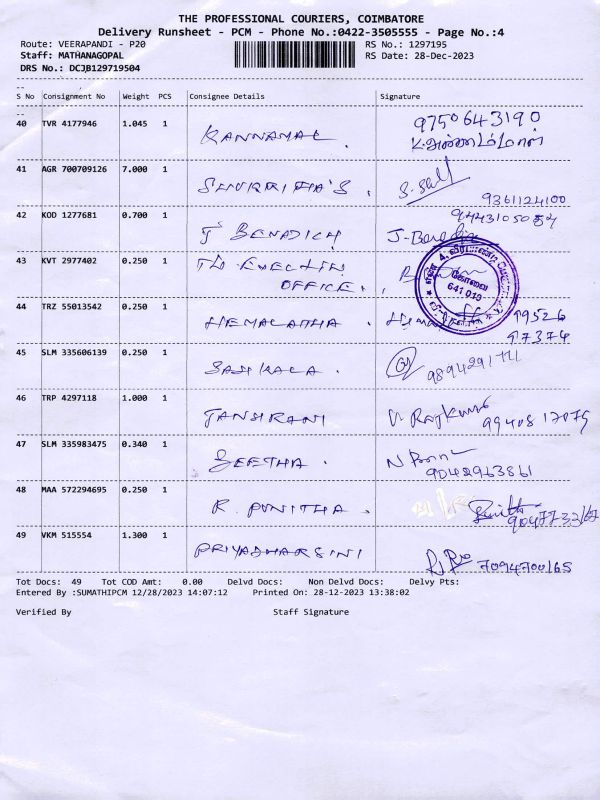 THE PROFESSIONAL COURIERS, COIMBATORE
Delivery Runsheet - PCM - Phone No.:0422-3505555 - Page No.:4
Route: VEERAPANDI - P20
RS No.: 1297195
Staff: MATHANAGOPAL
RS Date: 28-Dec-2023
DRS No.: DCJB129719504
S No Consignment No Weight PCS Consignee Details Signature
40 TVR 4177946 1.045 1 KANNAMAL. 9750643190
41 AGR 700709126 7.000 1 9361124100
42 KOD 1277681 0.700 1 J BENADICH
43 KVT 2977402 0.250 1
OFFICE.
641 019
44 TRZ 55013542 0.250 1 HEMALATHA. 99526
97374
45 SLM 335606139 0.250 1 SASIKALA.
46 TRP 4297118 1.000 1 JANSIRANI
47 SLM 335983475 0.340 1 GEETHA.
9042963861
48 MAA 572294695 0.250 1 R. PUNITHA.
49 VKM 515554 1.300 1 PRIYADHARSINI 7094700165
Tot Docs: 49 Tot COD Amt: 0.00 Delvd Docs: Non Delvd Docs: Delvy Pts:
Entered By :SUMATHIPCM 12/28/2023 14:07:12 Printed On: 28-12-2023 13:38:02
Verified By Staff Signature